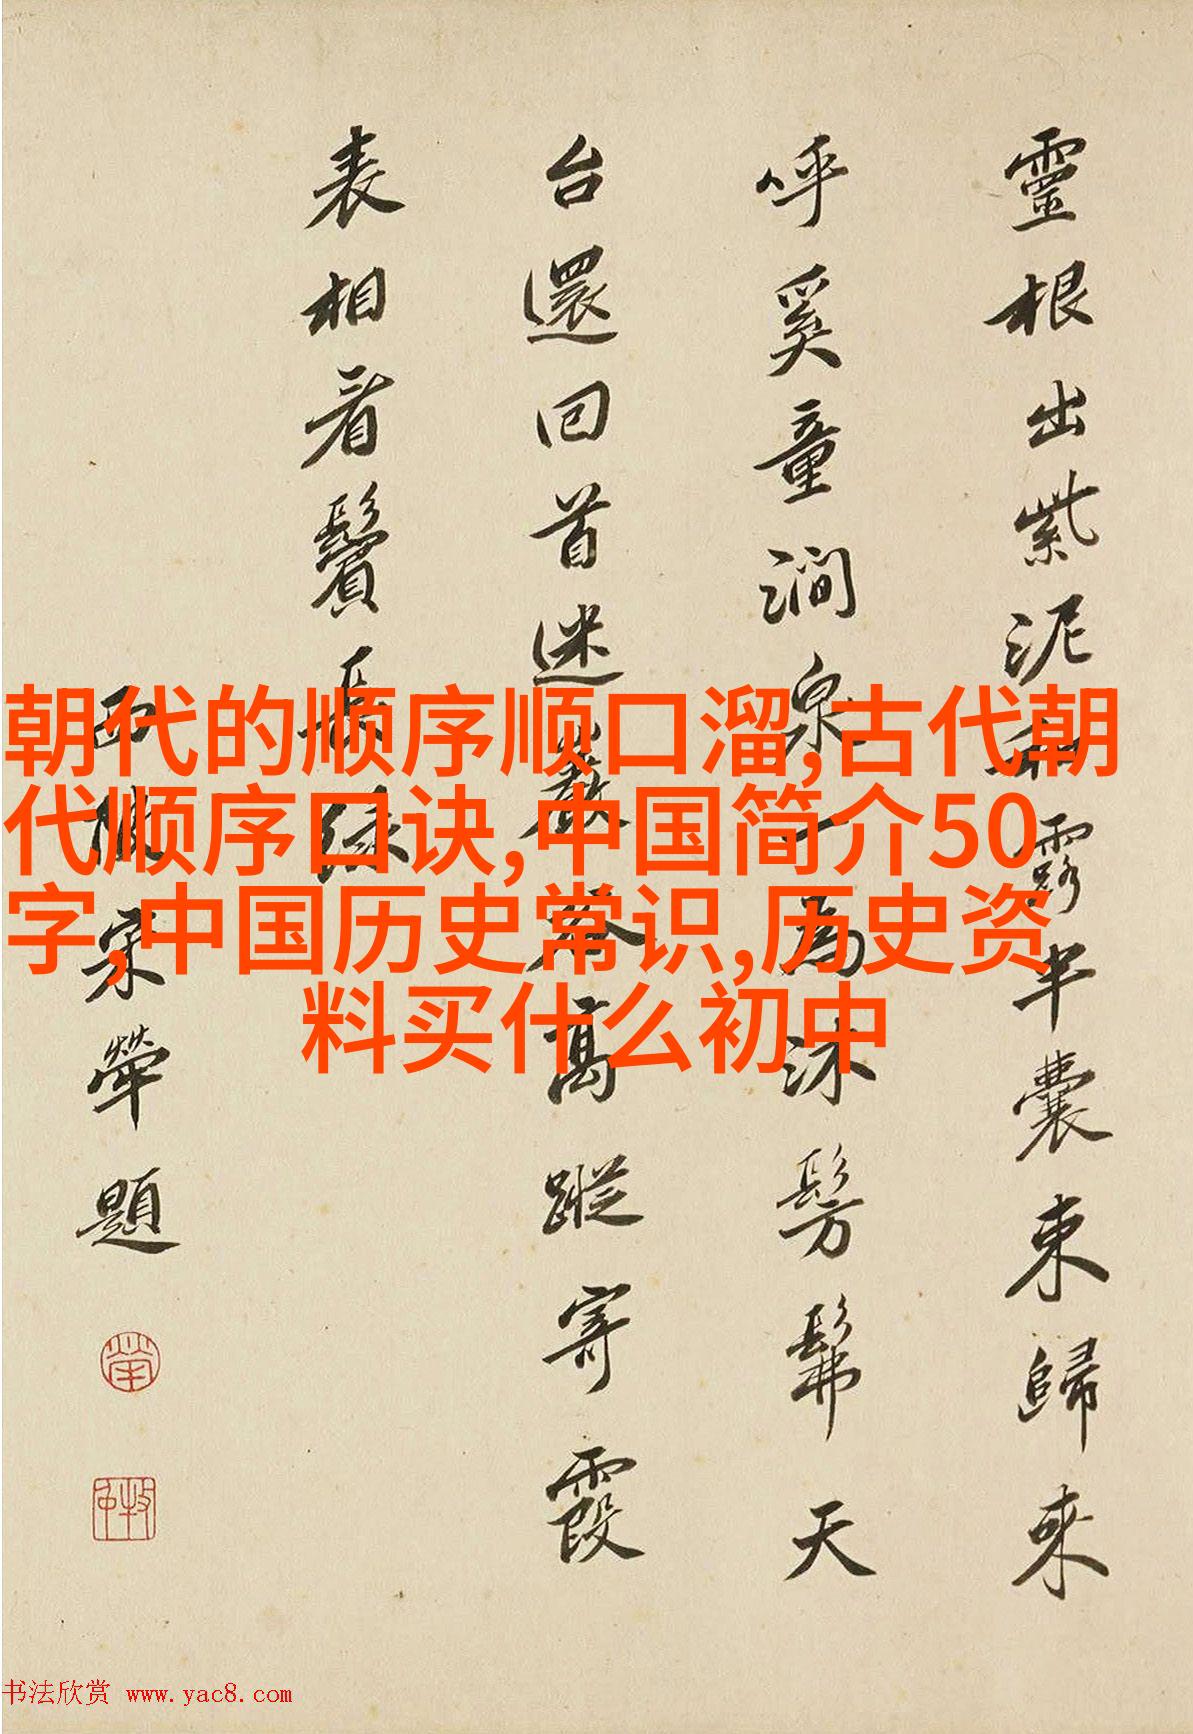 靈根出紫泥和露半囊束歸来
呼奚童澗泉一為沐髣髴天
台還回首迷巖谷高蹤寄霞
表相看鬢長緑
西陂宋犖題
犖
牧仲
朝代的顺序顺口溜,古代朝
代顺序口诀,中国简介50
字,中国历史常识,历史资
料买什么初中
书法欣赏 www.yac8.com